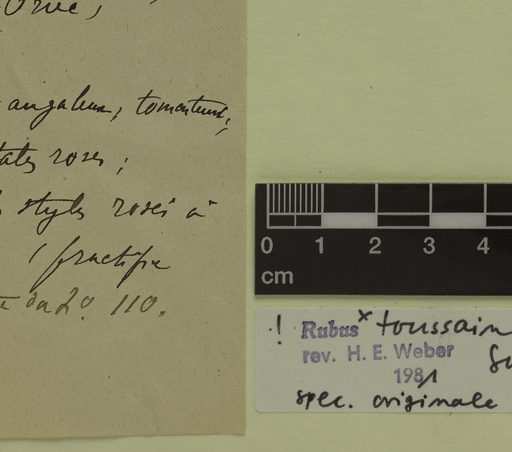 Orne,
angaleux, tomenteux,
roses ;
styles rosés à
fructifie
du 2º 110.
0 1 2 3 4
cm
! Rubus × toussain
rev. H. E. Weber
1981
spec. originale